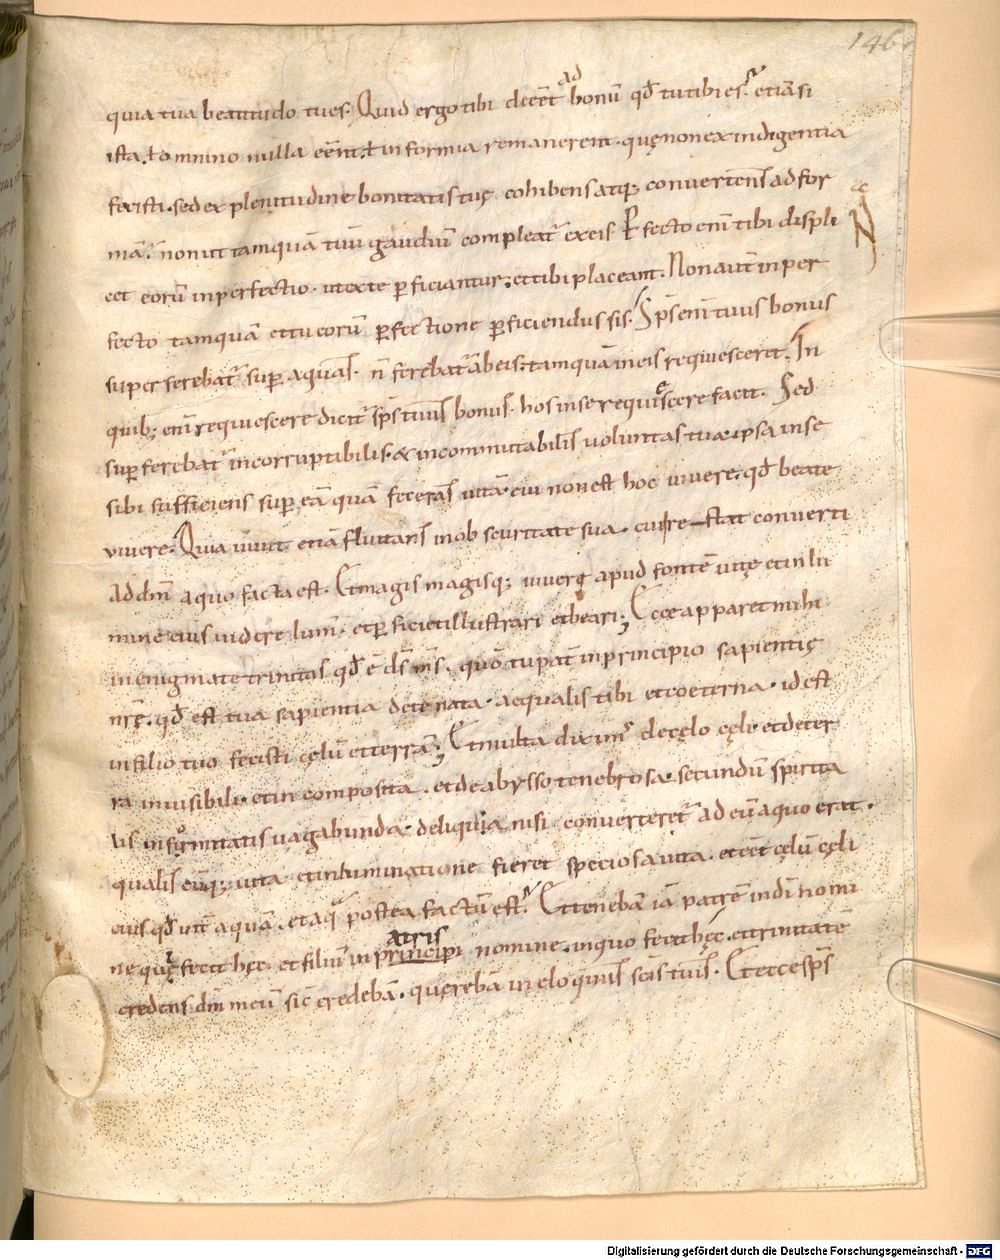 146
quia tua beatitudo tu es. Quid ergo tibi deeēt ad bonū qđ tu tibi es. etiā si
ista. ł omnino nulla eēnt. ł informia remanerent. quę non ex indigentia
fecisti. sed ex plenitudine bonitatis tuę cohibens atq; convertens ad for
mā. non ut tamquā tuū gaudiū compleat̄ ex eis Pfecto eni tibi displi
cet eorū inperfectio. ut ex te pficiantur. et tibi placeant. Non aut̄ inper
fecto tamquā et tu eorū pfectione pficiendus sis. Sps eni tuus bonus
super ferebat̄ sup aquas. n̄ ferebat̄ ab eis. tamquā in eis requiesceret. In
quib; eni requiescere dicit̄ sps tuus bonus. hos in se requiescere facit. Sed
sup ferebat̄ incorruptibilis. & incommutabilis voluntas tua. ipsa in se
sibi sufficiens sup eā quā feceras vitā. cui non est hoc vivere. qđ beate
vivere. Quia vivit etiā fluitans in obscuritate sua. cui restat converti
ad eū a quo facta est. Et magis magisq; vivere apud fontē vitę et in lu
mine eius videre lum̄. et pfici et illustrari et beari; Ecce apparet mihi
in enigmate trinitas qđ ē ds ms. quō tu pat̄ in principio sapientię
nrę. qđ est tua sapientia de te nata. aequalis tibi et coeterna. id est
in filio tuo fecisti cęlū et terrā; Et multa diximꝰ de cęlo cęli. et de ter
ra invisibili. et incomposita. et de abysso tenebrosa. secundū spirita
lis informitatis vagabunda deliquia nisi converteret̄ ad eū a quo erat.
qualiscūq; vita. et inluminatione fieret speciosa vita. et eēt cęlū cęli
eius. qđ int̄ aquā. et aquā postea factū est. Et tenebā iā patrē in dī nomi
ne qui fecit hęc. et filiū in principi nomine. in quo fecit hęc. et trinitatē
atris
credens dm meū sic credebā. quęrebā in eloquiis scis tuis. Et ecce sps
Digitalisierung gefördert durch die Deutsche Forschungsgemeinschaft - DFG